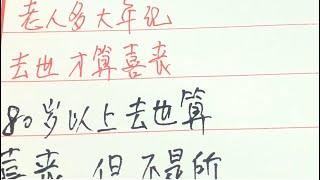 老人多大年记
去世才算喜丧
80岁以上去世算
喜丧 但不是所